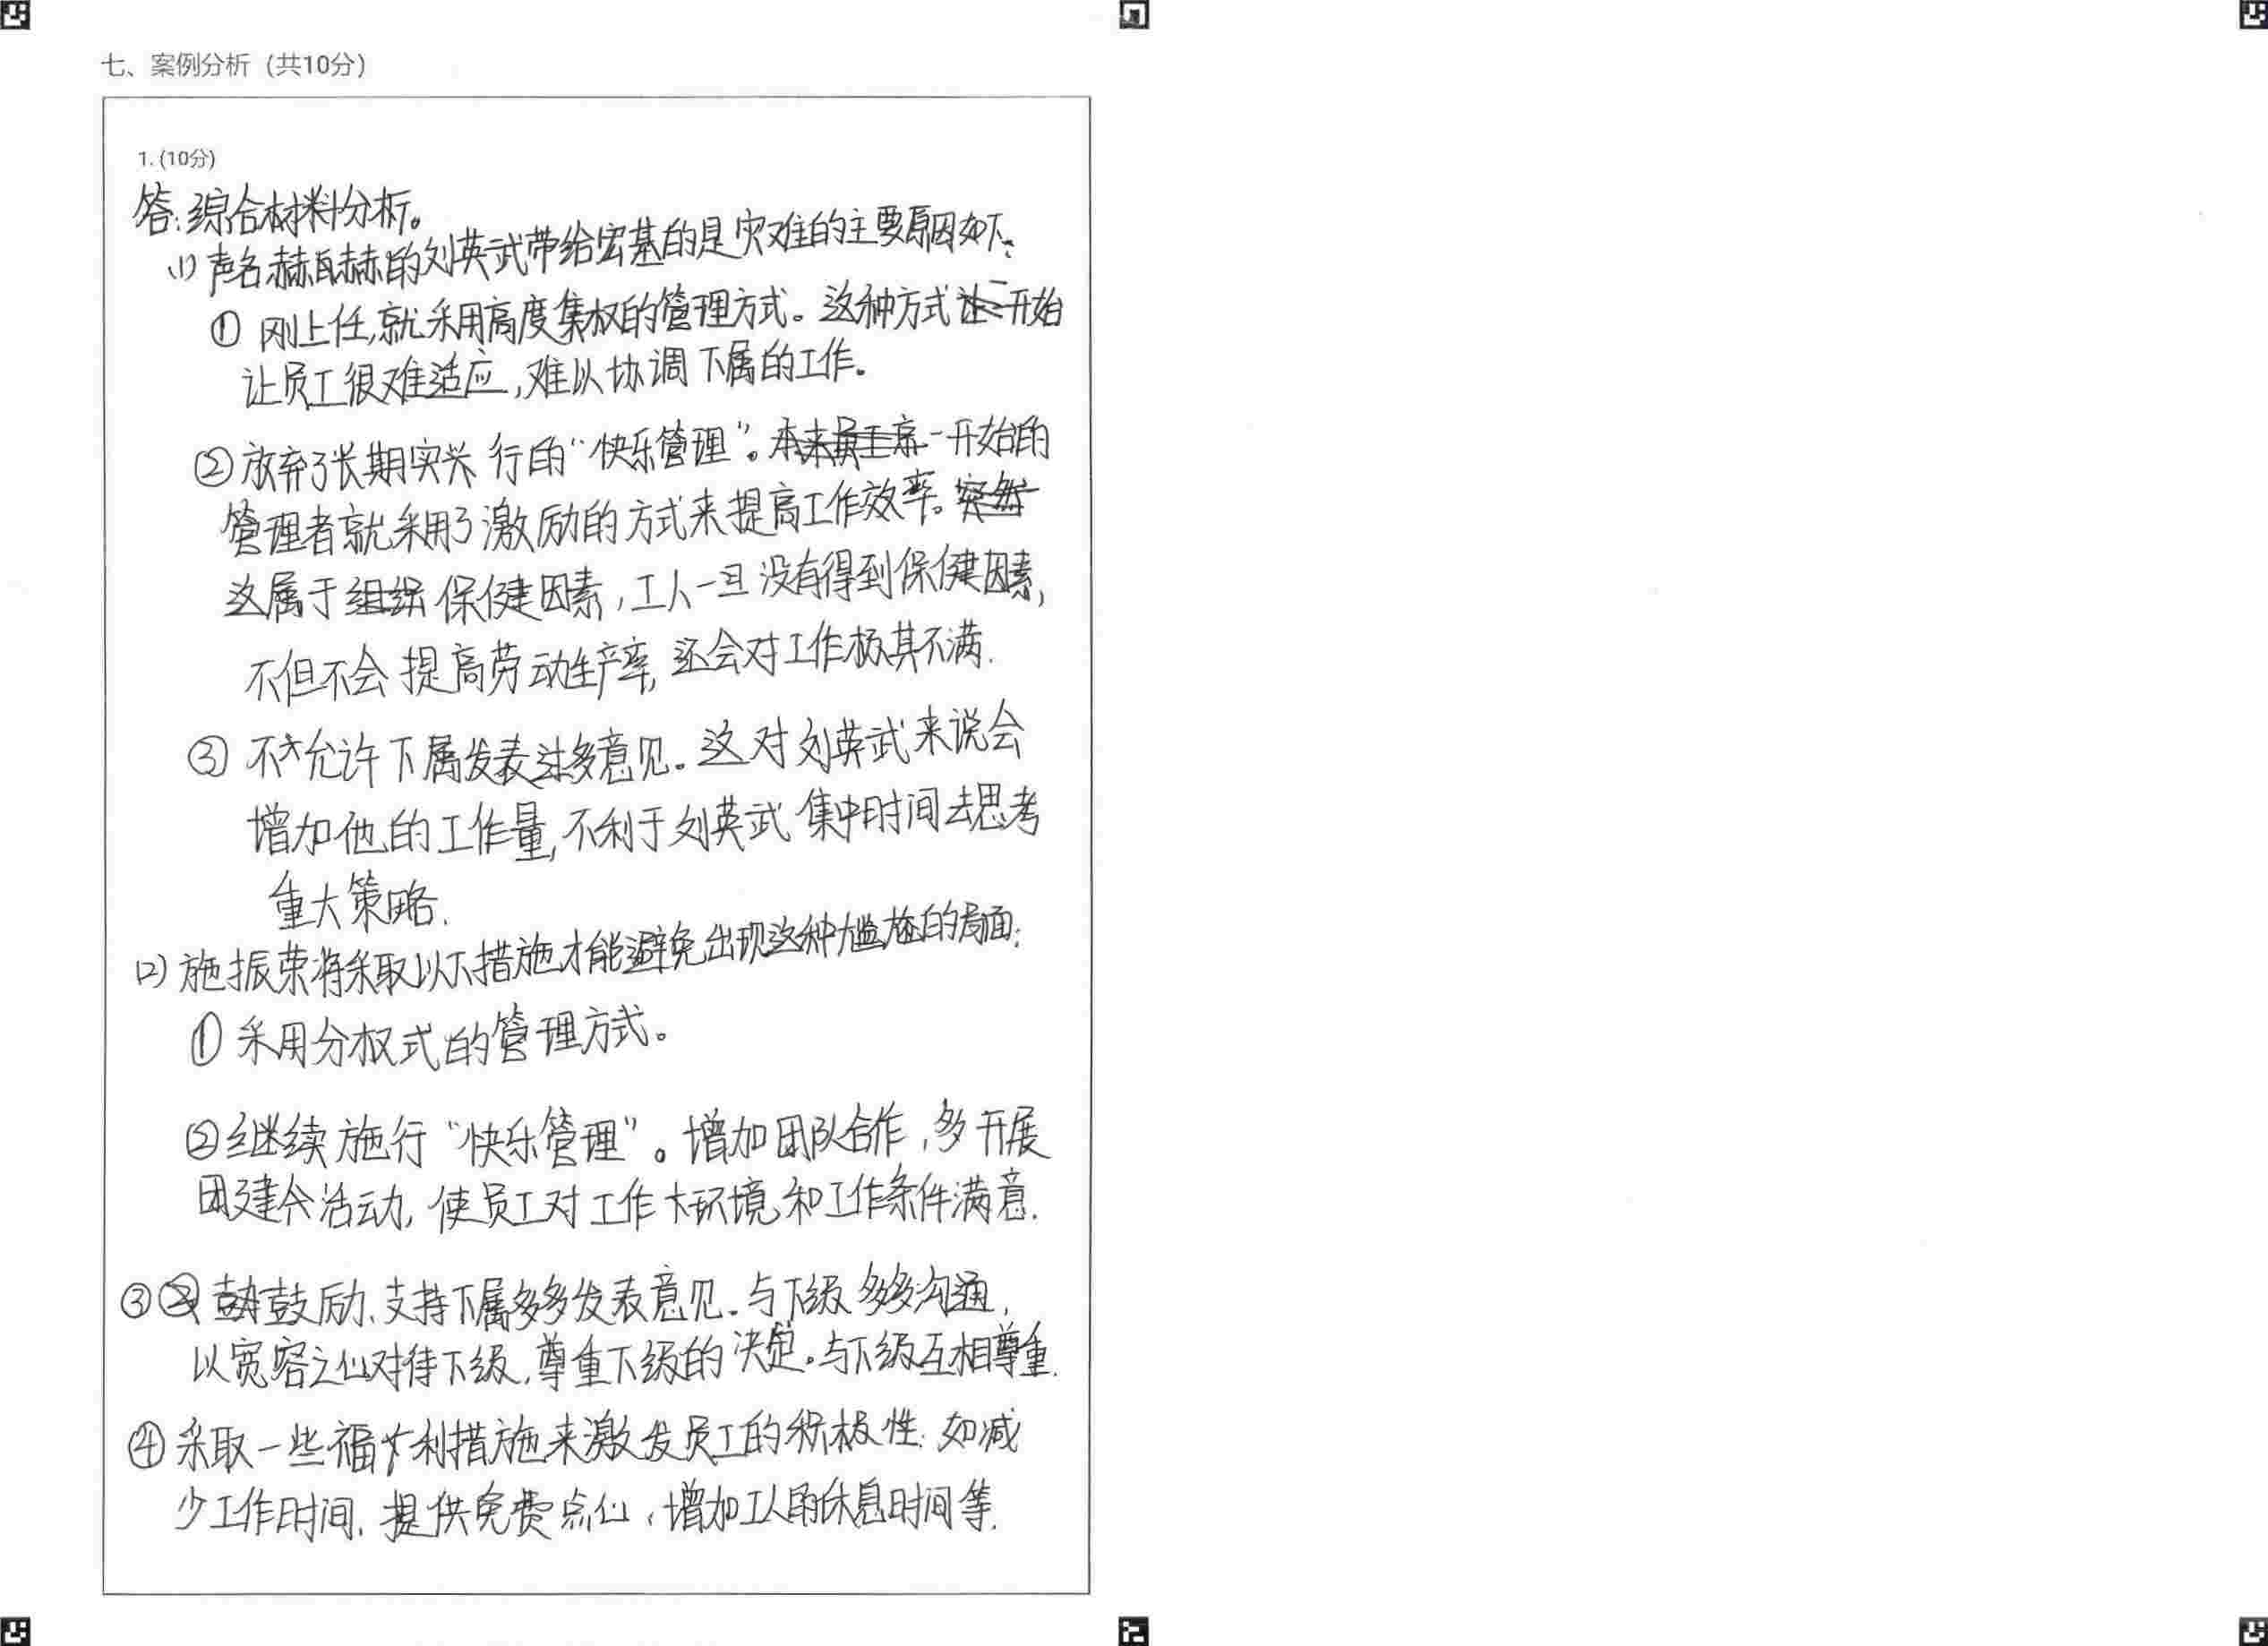 七、案例分析（共10分）
1. (10分)
答：综合材料分析。
(1) 声名赫赫的刘英武带给宏基的是灾难的主要原因如下：
① 刚上任，就采用高度集权的管理方式。这种方式一开始
让员工很难适应，难以协调下属的工作。
② 放弃了长期实行的“快乐管理”。一开始的
管理者就采用了激励的方式来提高工作效率。
这属于保健因素，工人一旦没有得到保健因素，
不但不会提高劳动生产率，还会对工作极其不满.
③ 不允许下属发表过多意见。这对刘英武来说会
增加他的工作量，不利于刘英武集中时间去思考
重大策略.
(2) 施振荣将采取以下措施才能避免出现这种尴尬的局面：
① 采用分权式的管理方式。
② 继续施行“快乐管理”。增加团队合作，多开展
团建活动，使员工对工作环境和工作条件满意.
③ 鼓励、支持下属多多发表意见.与下级多多沟通，
以宽容之心对待下级，尊重下级的决定。与下级互相尊重.
④ 采取一些福利措施来激发员工的积极性.如减
少工作时间，提供免费点心，增加工人的休息时间等.